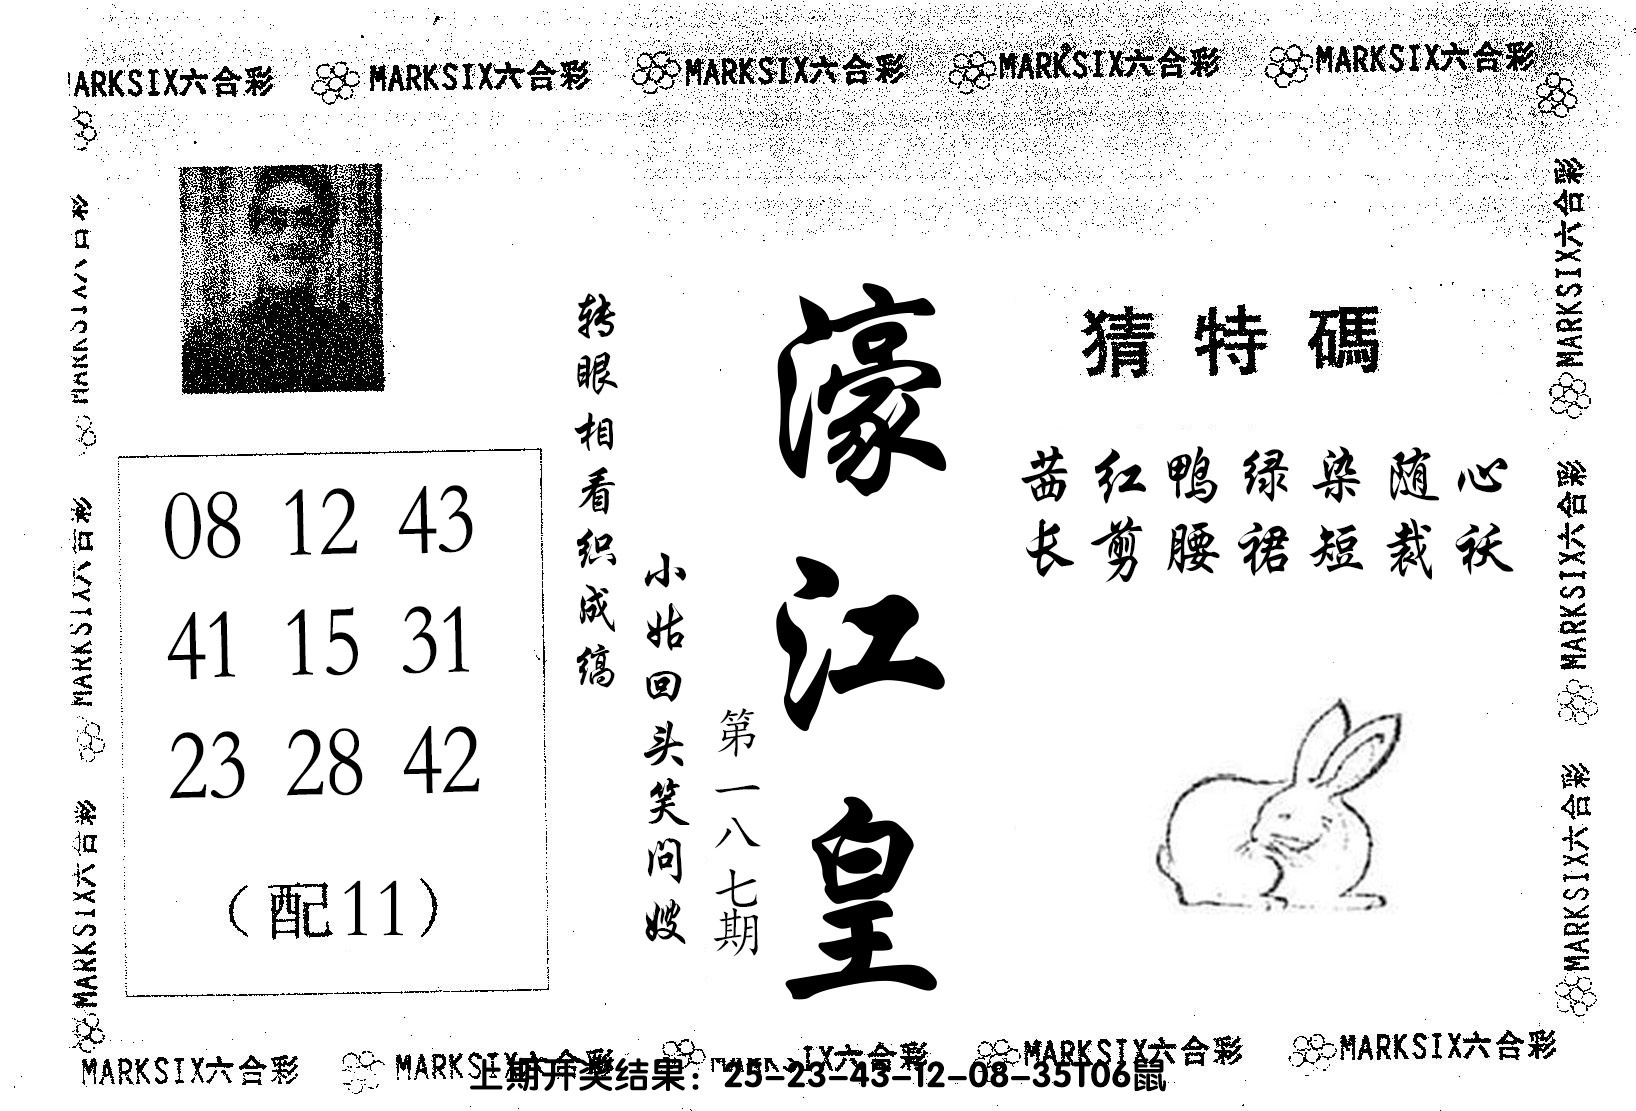 MARKSIX六合彩 MARKSIX六合彩 MARKSIX六合彩 MARKSIX六合彩 MARKSIX六合彩
猜特碼
茜红鸭绿染随心
长剪腰裙短裁袄
濠江皇
第一八七期
小姑回头笑问嫂
转眼相看织成缟
08 12 43
41 15 31
23 28 42
（配11）
MARKSIX六合彩
MARKSIX六合彩
MARKSIX六合彩
MARKSIX六合彩
MARKSIX六合彩
MARKSIX六合彩
MARKSIX六合彩 MARKSIX六合彩 MARKSIX六合彩 MARKSIX六合彩
上期开奖结果：25-23-43-12-08-35T06鼠